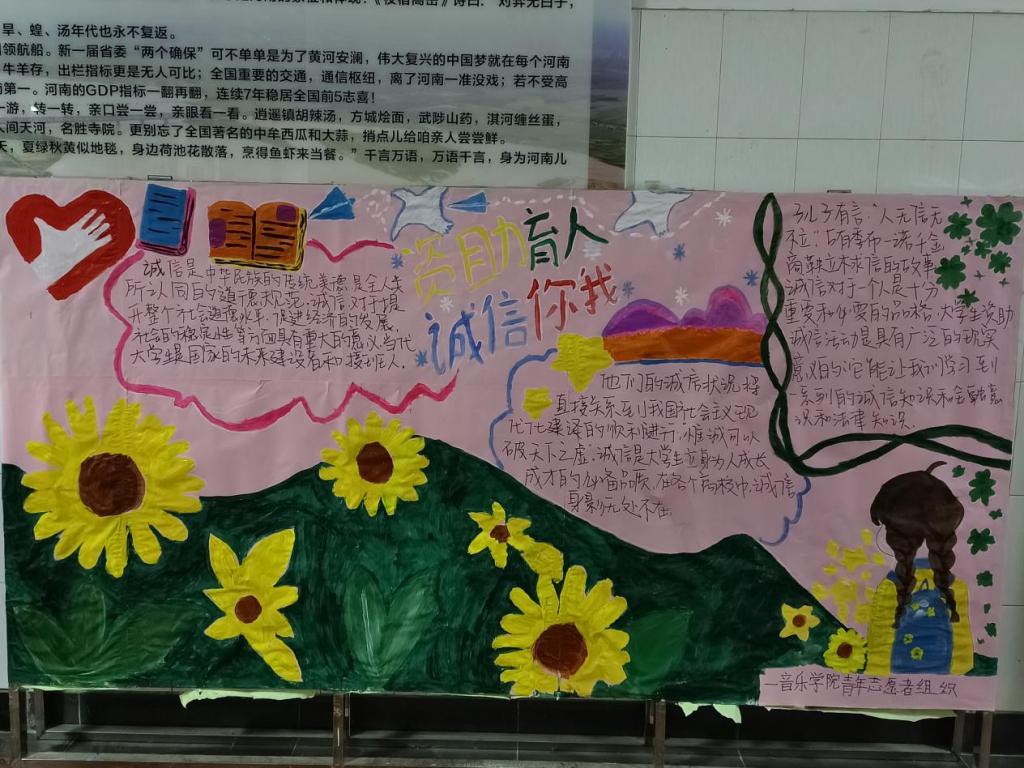 旱、蝗、汤年代也永不复返。
领航船。新一届省委“两个确保”可不单单是为了黄河安澜，伟大复兴的中国梦就在每个河南
牛羊存，出栏指标更是无人可比；全国重要的交通，通信枢纽，离了河南一准没戏；若不受高
第一。河南的GDP指标一翻再翻，连续7年稳居全国前5志喜！
一游，转一转，亲口尝一尝，亲眼看一看。逍遥镇胡辣汤，方城烩面，武陟山药，淇河缠丝蛋，
人间天河，名胜寺院。更别忘了全国著名的中牟西瓜和大蒜，捎点儿给咱亲人尝尝鲜。
天，夏绿秋黄似地毯，身边荷池花散落，烹得鱼虾来当餐。”千言万语，万语千言，身为河南儿
资助育人
诚信你我
诚信是中华民族的传统美德,是全人类
所认同的道德规范,诚信对于提
升整个社会道德水平,促进经济的发展,
社会的稳定性等方面具有重大的意义,当代
大学生是国家的未来建设者和接班人.
他们的诚信状况将
直接关系到我国社会主义现
代化建设的顺利进行,惟诚可以
破天下之虚.诚信是大学生立身为人成长
成才的必备品质,在各个高校中,诚信
身影无处不在.
孔子有言:“人无信无
不立”.占有季布一诺千金,
商鞅立木求信的故事
诚信对于一个人是十分
重要和必要的品格,大学生资助
诚信活动是具有广泛的现实
意义的,它能让我们学习到
一系列的诚信知识和金融意
识和法律知识.
音乐学院青年志愿者组织